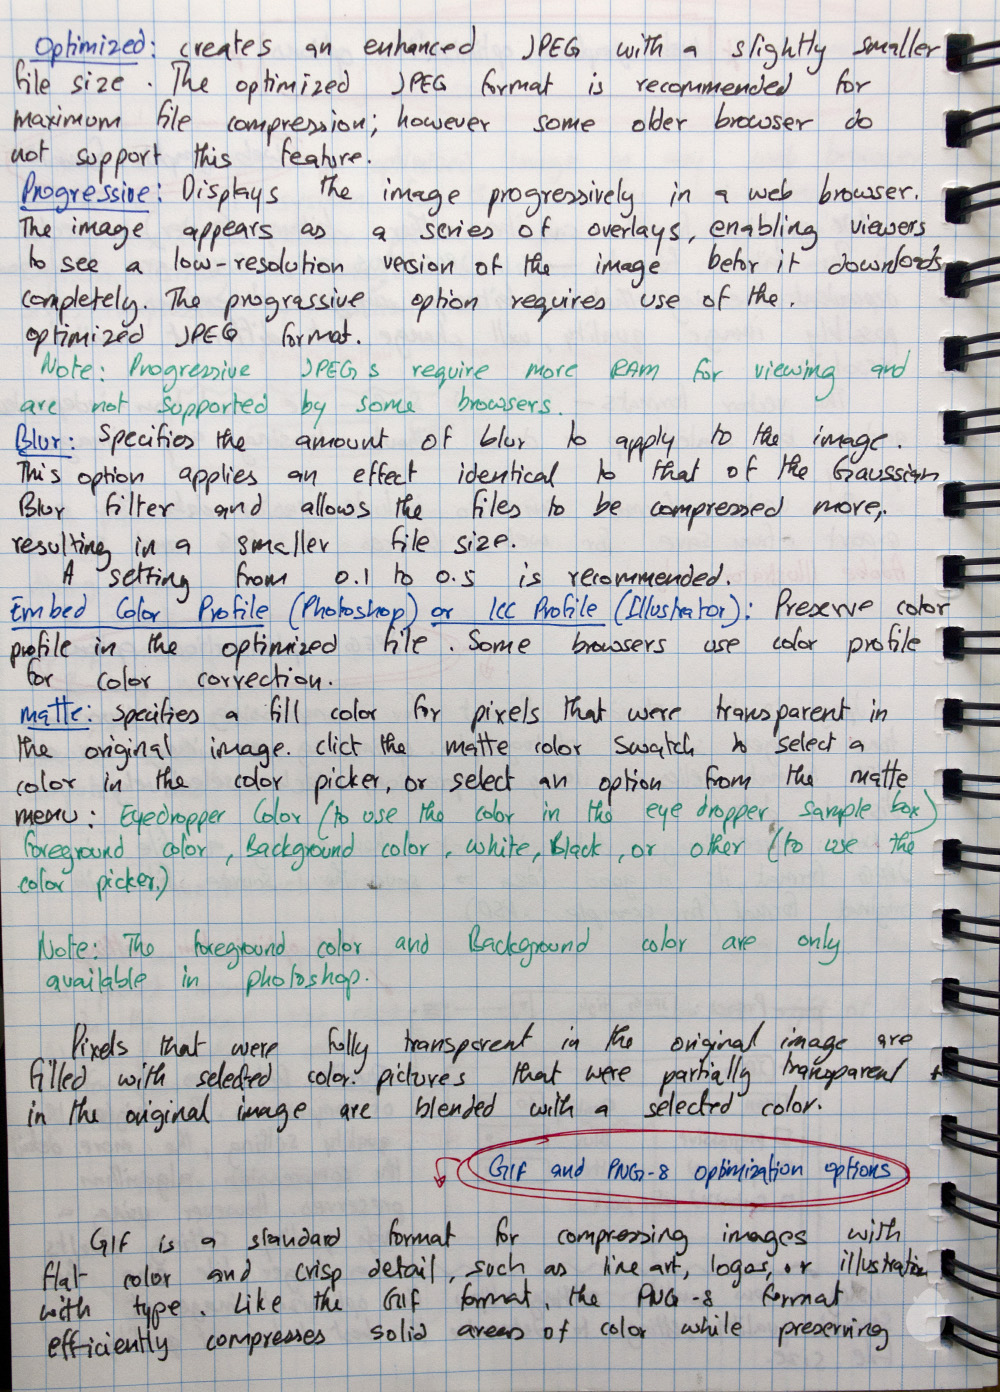 Optimized: creates an enhanced JPEG with a slightly smaller
file size. The optimized JPEG format is recommended for
maximum file compression; however some older browser do
not support this feature.
Progressive: Displays the image progressively in a web browser.
The image appears as a series of overlays, enabling viewers
to see a low-resolution version of the image befor it downloads
completely. The prograssive option requires use of the.
optimized JPEG format.
Note: Progressive JPEGs require more RAM for viewing and
are not supported by some browsers.
Blur: Specifies the amount of blur to apply to the image.
This option applies an effect identical to that of the Gaussian
Blur filter and allows the files to be compressed more,
resulting in a smaller file size.
A setting from 0.1 to 0.5 is recommended.
Embed Color Profile (Photoshop) or ICC Profile (Illustrator): Preserve color
profile in the optimized file. Some browsers use color profile
for color correction.
matte: specifies a fill color for pixels that were transparent in
the original image. clict the matte color swatch to select a
color in the color picker, or select an option from the matte
menu: Eyedropper Color (to use the color in the eye dropper sample box)
foreground color, Background color, white, Black, or other (to use the
color picker.)
Note: The foreground color and Background color are only
available in photoshop.
Pixels that were fully transparent in the original image are
filled with selected color. pictures that were partially transparent
in the original image are blended with a selected color.
GIF and PNG-8 optimization options
GIF is a standard format for compressing images with
flat color and crisp detail, such as line art, logos, or illustration
with type. Like the GIF format, the PNG-8 format
efficiently compresses solid areas of color while preserving